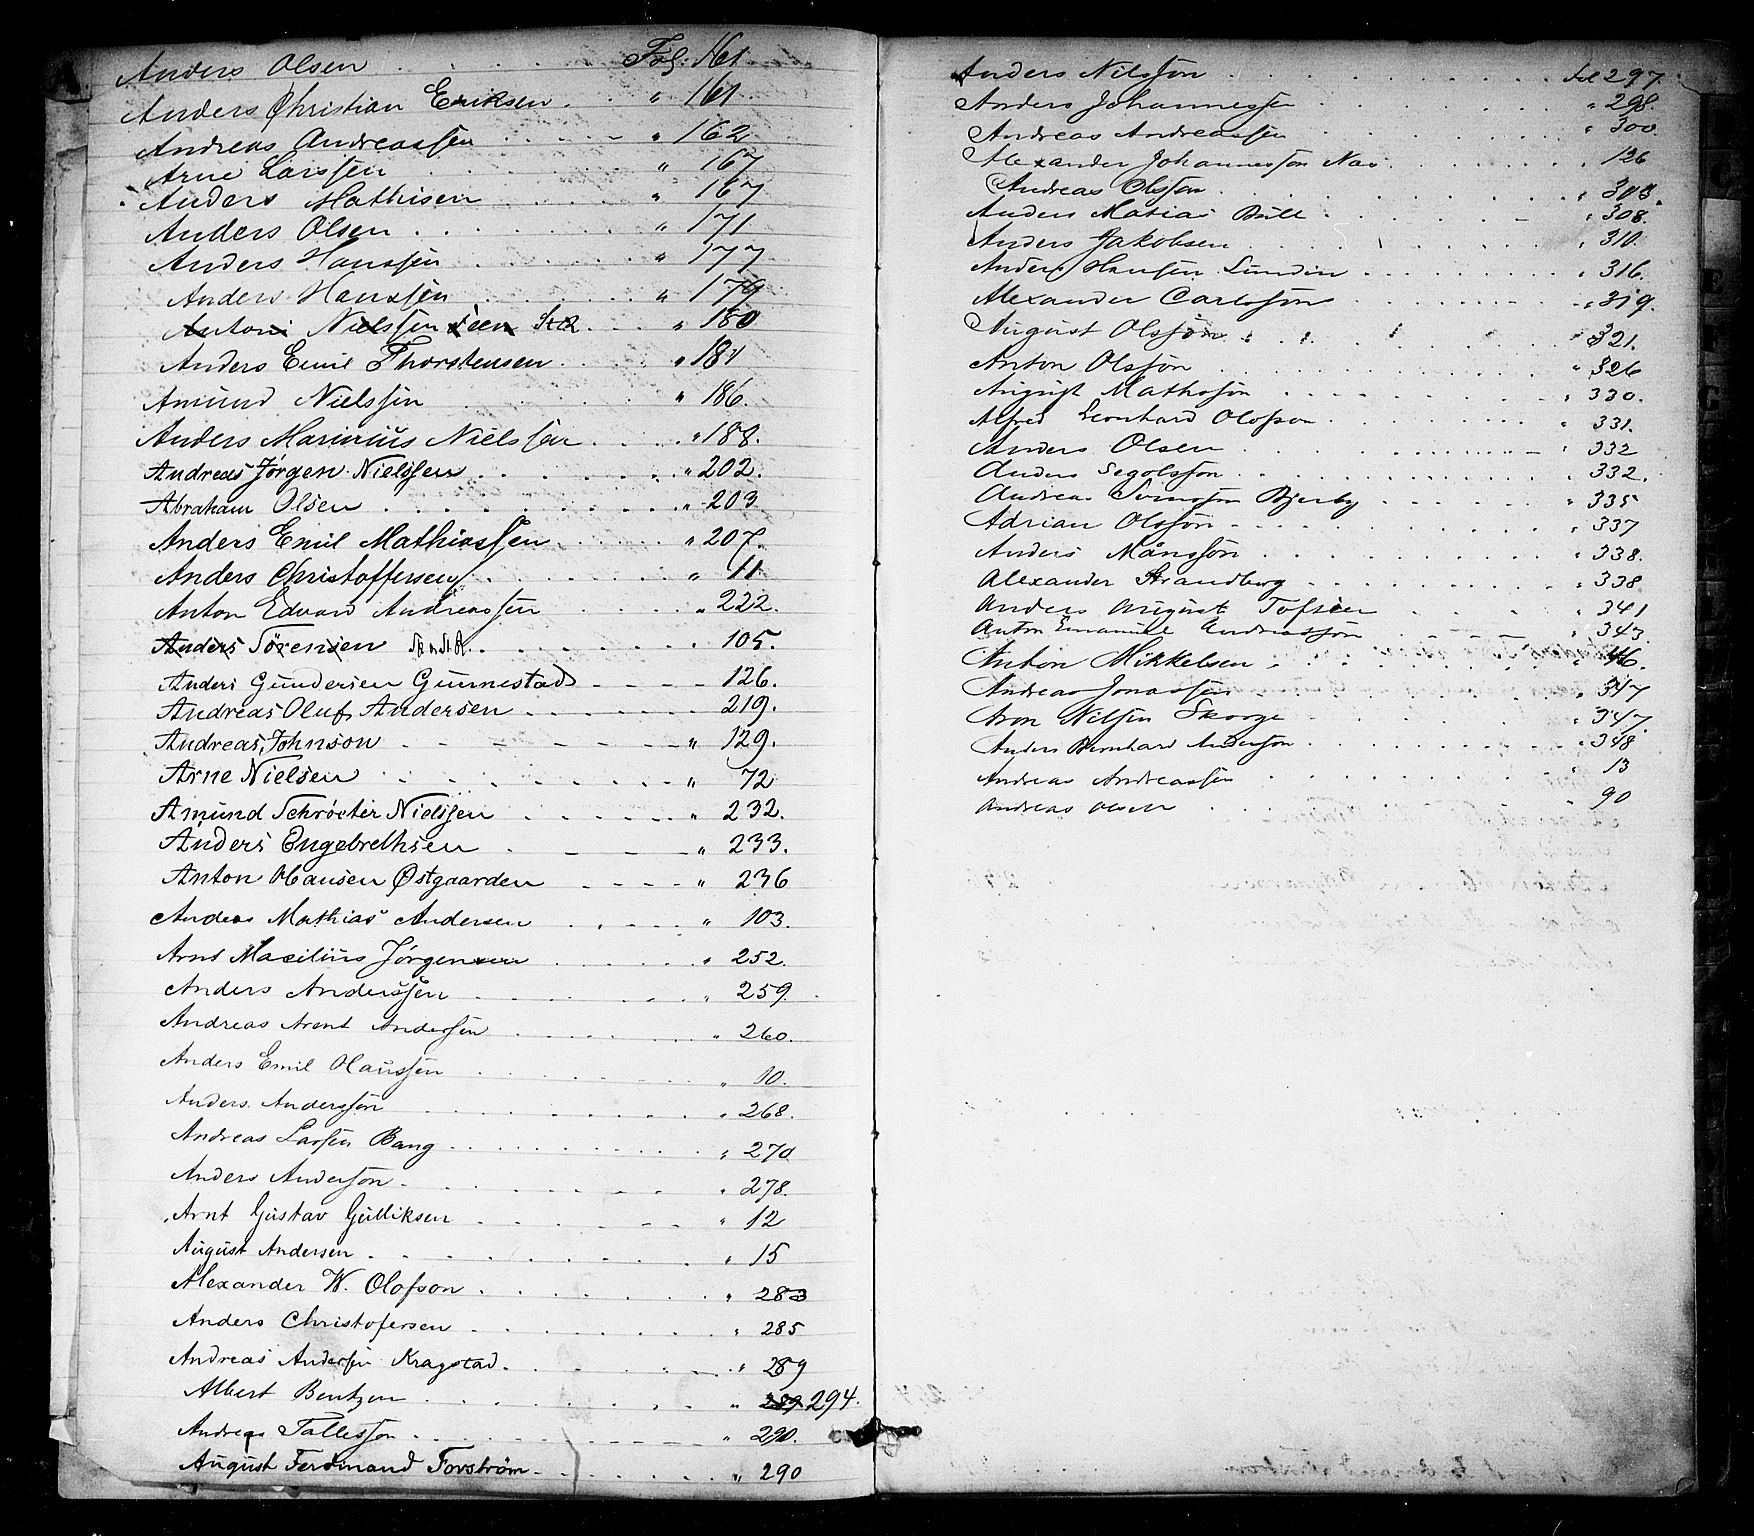 Anders Olsen Fol: 161
Anders Christian Eriksen " 161
Andreas Andreassen " 162
Arne Larssen " 167
Anders Mathisen " 167
Anders Olsen " 171
Anders Hanssen " 177
Anders Hanssen " 179
Anton Nielssen " 180
Anders Emil Thorstensen " 181
Amund Nielssen " 186
Anders Marinius Nielssen " 188.
Andreas Jørgen Nielssen " 202.
Abraham Olsen " 203
Anders Emil Mathiassen " 207.
Anders Christoffersen " 11
Anton Edvard Andreassen " 222.
Anders Sørensen 105.
Anders Gundersen Gunnestad 126.
Andreas Oluf Andersen 219.
Andreas Johnson " 129.
Arne Nielsen " 72
Amund Schrøeter Nielssen " 232.
Anders Engebrethsen " 233.
Anton Hansen Østgaarden " 236
Anders Mathias Andersen " 103.
Arnt Macilius Jørgensen " 252.
Anders Anderssen " 259.
Andreas Arent Andersen " 260.
Anders Emil Hanssen " 10.
Anders Andersson " 268.
Andreas Larsen Bang " 270
Anders Anderson " 278.
Arnt Gustav Gulliksen " 12
August Andersen " 15
Alexander W. Olofson " 283
Anders Christofersen " 285
Andreas Andersen Kragstad " 289
Albert Bentzen " 289 294.
Andreas Tallesson " 290.
August Ferdinand Forström " 290
Anders Nilsson fol 297.
Anders Johannessen " 298.
Andreas Andreassen " 300.
Alexander Johannesson Nav 126
Andreas Olsson " 303.
Anders Matias Bull " 308.
Anders Jakobsen " 310.
Anders Hansen Lundin " 316.
Alexander Carlsson " 319.
August Olsson " 321.
Anton Olsson " 326
August Mathsson " 330.
Alfred Leonhard Olofson " 331.
Anders Olsen " 332
Anders Segolsson 332.
Andreas Svensson Bjerby " 335
Adrian Olsson " 337
Anders Månsson " 338.
Alexander Strandberg " 338
Anders August Tofsen " 341
Anton Emanuel Andreasson " 343.
Anton Mikkelsen " 46.
Andreas Jonassen " 347
Aron Nilsen Skorge " 347.
Anders Bernhard Anderson " 348
Andreas Andreassen " 13
Andreas Olsen " 90